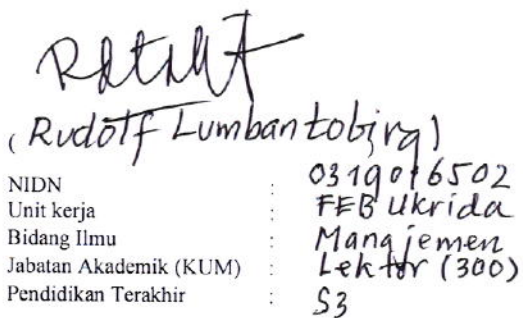 (Rudolf Lumbantobing)
NIDN : 0319016502
Unit kerja : FEB Ukrida
Bidang Ilmu : Manajemen
Jabatan Akademik (KUM) : Lektor (300)
Pendidikan Terakhir : S3